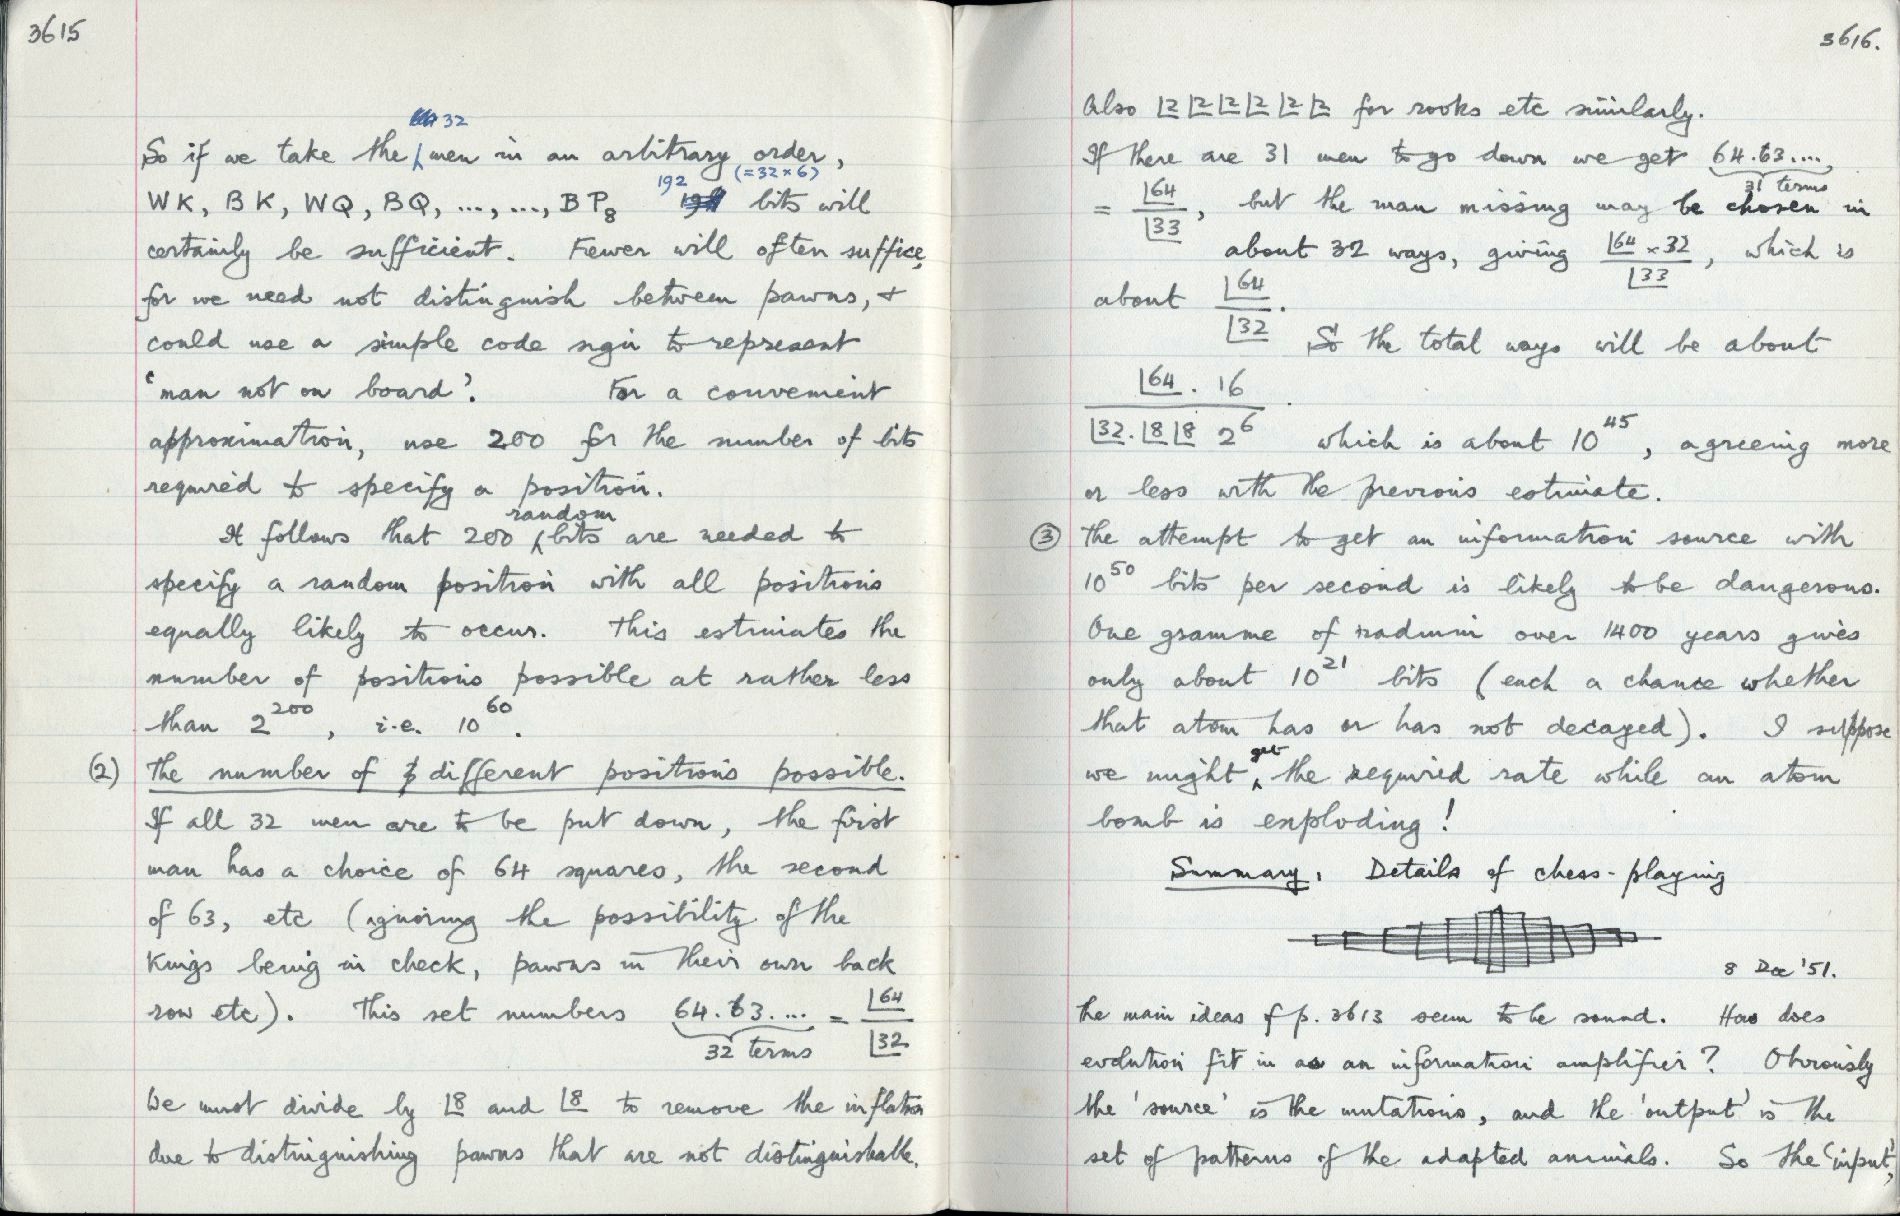 3615
So if we take the 32 men in an arbitrary order,
WK, BK, WQ, BQ, ..., ..., BP8 192 (=32×6) bits will
certainly be sufficient. Fewer will often suffice,
for we need not distinguish between pawns, +
could use a simple code sign to represent
'man not on board'. For a convenient
approximation, use 200 for the number of bits
required to specify a position.
It follows that 200 random bits are needed to
specify a random position with all positions
equally likely to occur. This estimates the
number of positions possible at rather less
than 2^200, i.e. 10^60.
(2) The number of different positions possible.
If all 32 men are to be put down, the first
man has a choice of 64 squares, the second
of 63, etc (ignoring the possibility of the
Kings being in check, pawns in their own back
row etc). This set numbers 64.63.... = |64 / |32
32 terms
We must divide by |8 and |8 to remove the inflation
due to distinguishing pawns that are not distinguishable.
3616.
Also |2 |2 |2 |2 |2 |2 for rooks etc similarly.
If there are 31 men to go down we get 64.63....,
31 terms
= |64 / |33, but the man missing may be chosen in
about 32 ways, giving |64 × 32 / |33, which is
about |64 / |32.
So the total ways will be about
|64 . 16 / |32 . |8 |8 2^6 . which is about 10^45, agreeing more
or less with the previous estimate.
(3) The attempt to get an information source with
10^50 bits per second is likely to be dangerous.
One gramme of radium over 1400 years gives
only about 10^21 bits (each a chance whether
that atom has or has not decayed). I suppose
we might get the required rate while an atom
bomb is exploding!
Summary. Details of chess-playing
8 Dec '51.
The main ideas of p. 3613 seem to be sound. How does
evolution fit in as an information amplifier? Obviously
the 'source' is the mutations, and the 'output' is the
set of patterns of the adapted animals. So the 'input',